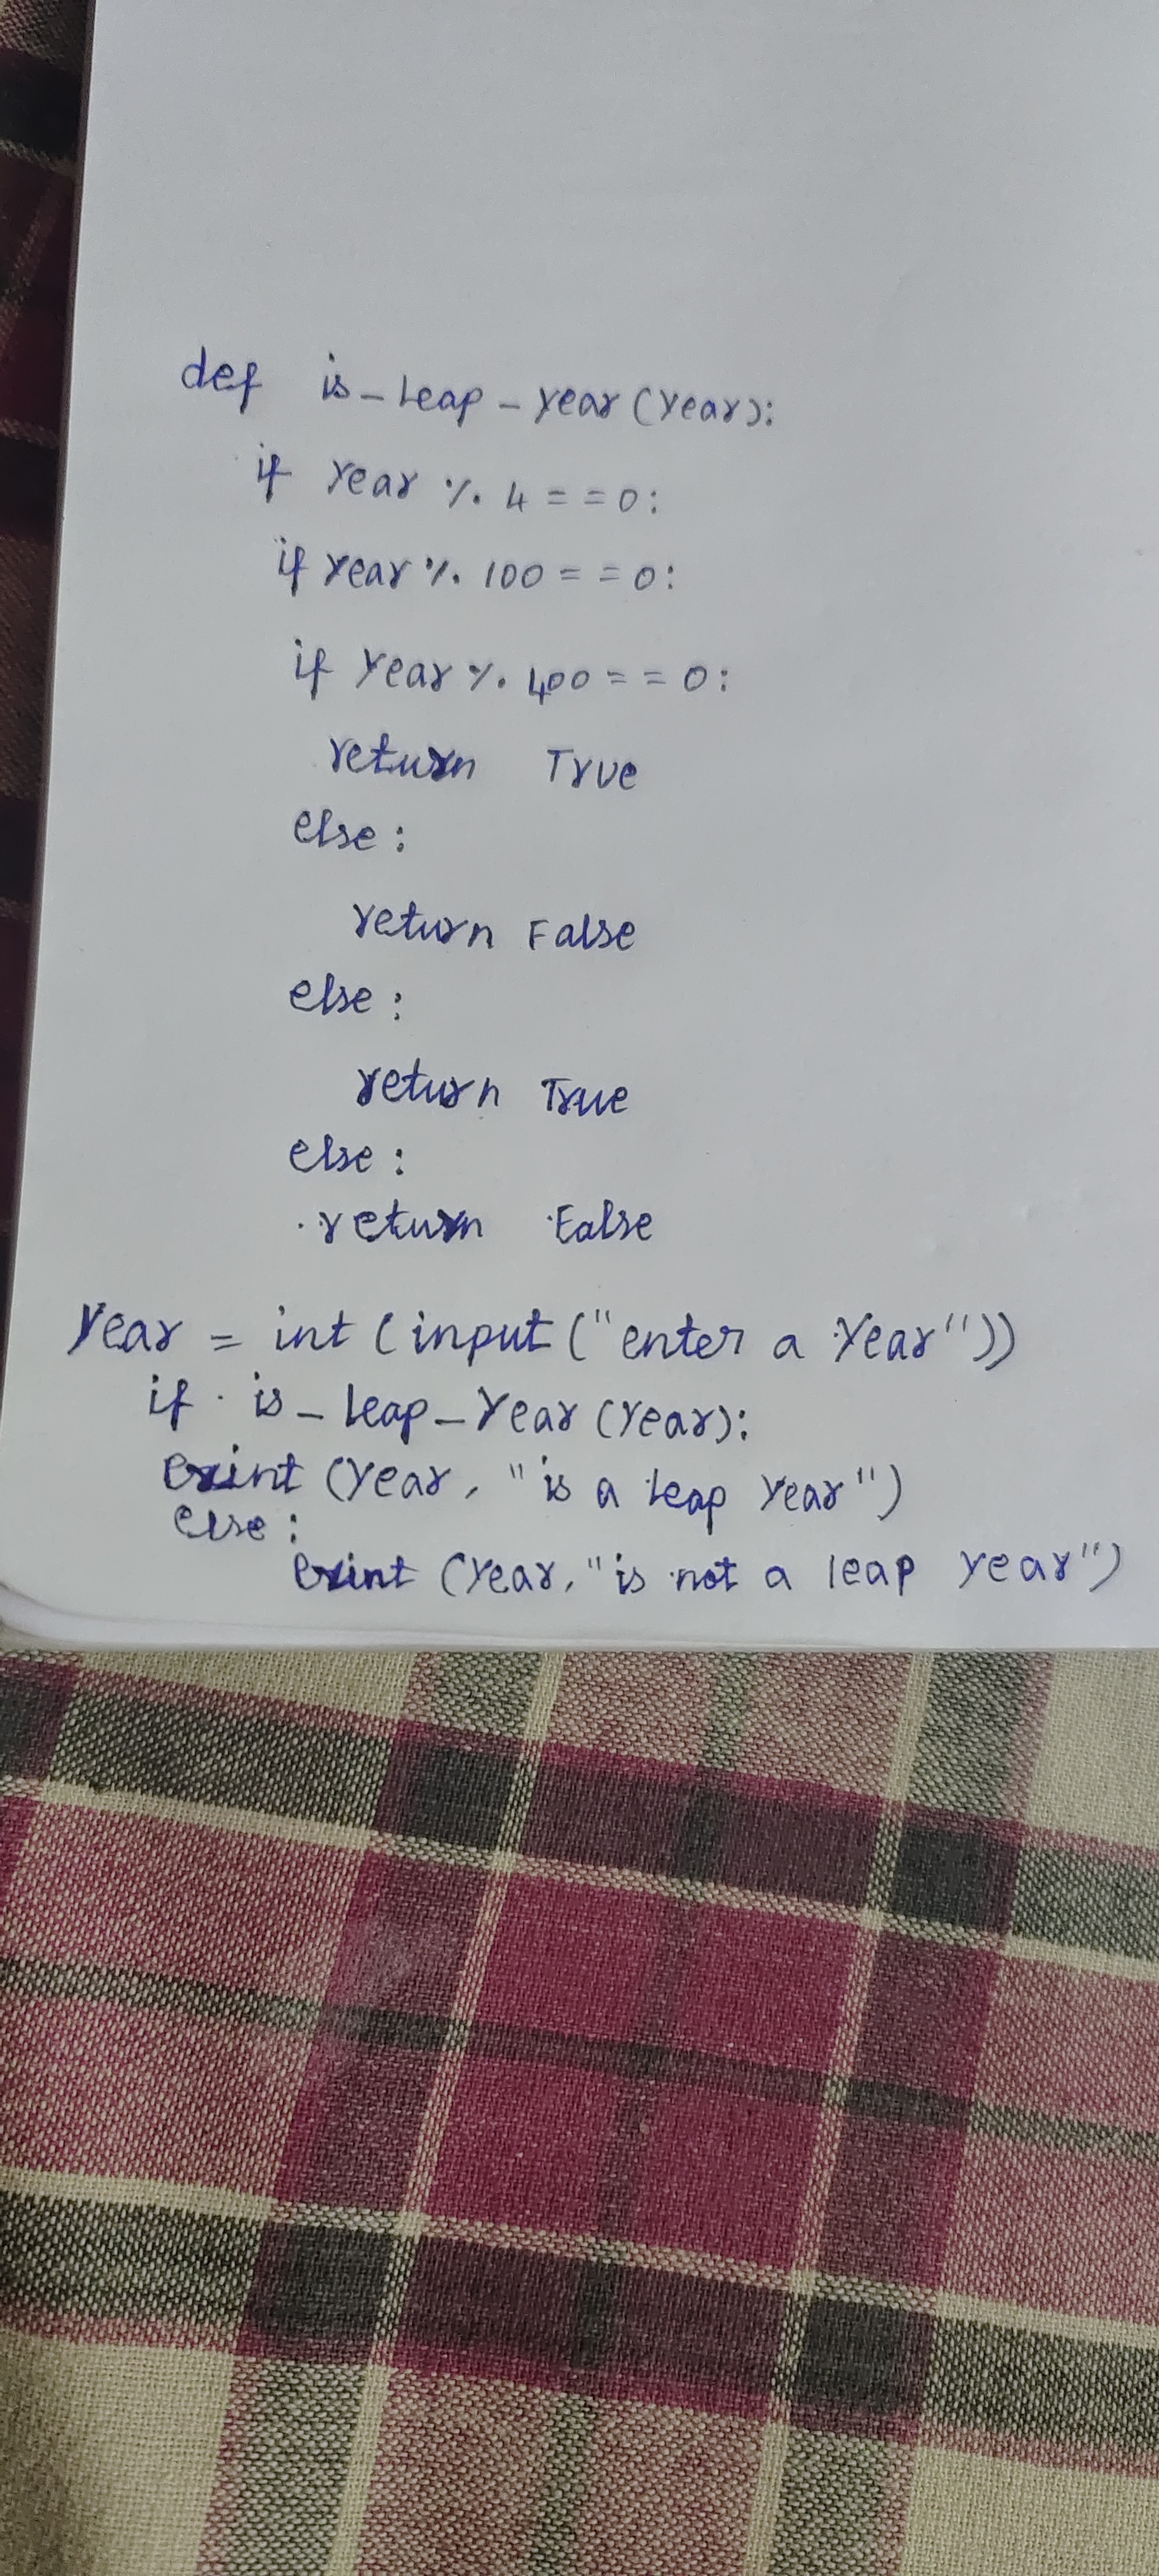 def is_leap_year(year):
if year % 4 == 0:
if year % 100 == 0:
if year % 400 == 0:
return True
else:
return False
else:
return True
else:
return False
year = int(input("enter a year"))
if is_leap_year(year):
print(year, "is a leap year")
else:
print(year, "is not a leap year")